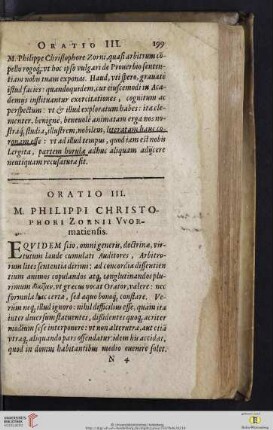 ORATIO III. 199
M. Philippe Christophore Zorni, quasi arbitrum cō-
pello rogoq́; vt hoc ipso vulgari de Proverbio senten-
tiam nobis tuam exponas. Haud, vti spero, gravatè
istud facies: quandoquidem, cur eiuscemodi in Aca-
demijs instituantur exercitationes, cognitum ac
perspectum: vt & illud exploratum habes: ita cle-
menter, benignè, benevolè animatam erga nos no-
straq́; studia, illustrem, nobilem, literatam hanc co-
ronam esse: vt ad illud tempus, quod iam est nobis
largita, partem horulæ adhuc aliquam adijcere
neutiquam recusatura sit.
ORATIO III.
M. PHILIPPI CHRISTO-
PHORI ZORNII VVor-
matiensis.
EQVIDEM scio, omni generis, doctrinæ, vir-
tutum laude cumulati Auditores, Arbitro-
rum lites sententiâ dirimi: ad concordiā dissentien
tium animos copulandos atq́; conglutinandos plu-
rimum
vt græcus vocat Orator, valere: nec
formula hac certa, sed æquo bonoq́; constare. Ve-
rùm neq́; illud ignoro: nihil difficilius esse, quàm ita
inter diversum statuentes, dissidentes quoq́; acriter
medium sese interponere: vt non alterutra, aut etiā
vtraq́; aliquando pars offendatur: idem his accidat,
quod in domus habitantibus medio evenire solet.
N 4